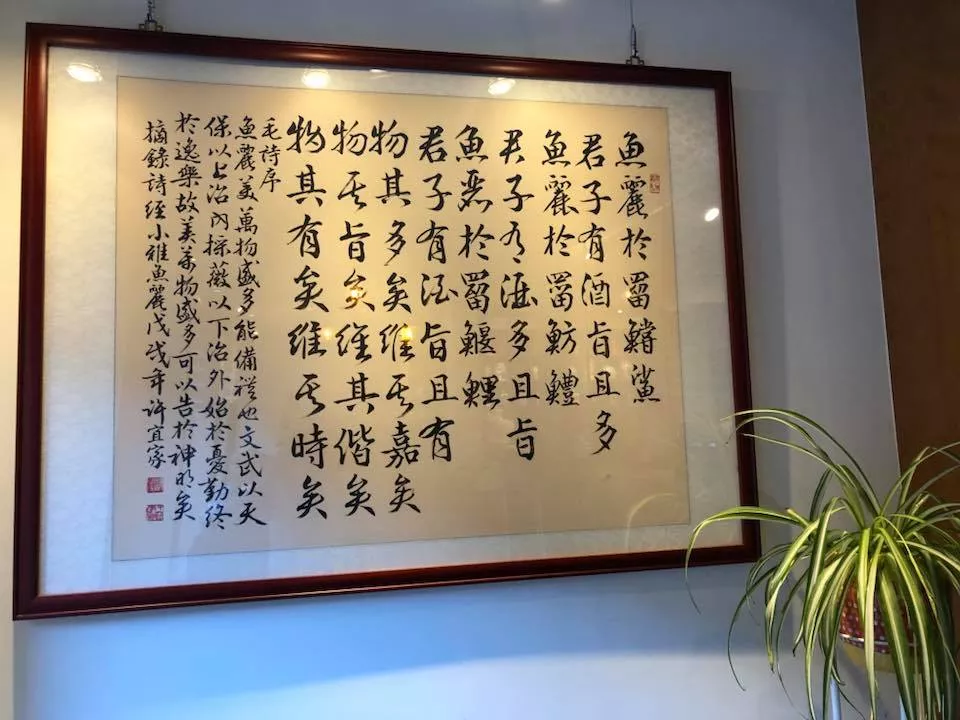 魚麗於罶鱨鯊
君子有酒旨且多
魚麗於罶魴鱧
君子有酒多且旨
魚麗於罶鰋鯉
君子有酒旨且有
物其多矣維其嘉矣
物其旨矣維其偕矣
物其有矣維其時矣
毛詩序
魚麗美萬物盛多能備禮也文武以天
保以上治內採薇以下治外始於憂勤終
於逸樂故美萬物盛多可以告於神明矣
摘錄詩經小雅魚麗戊戌年許宜家